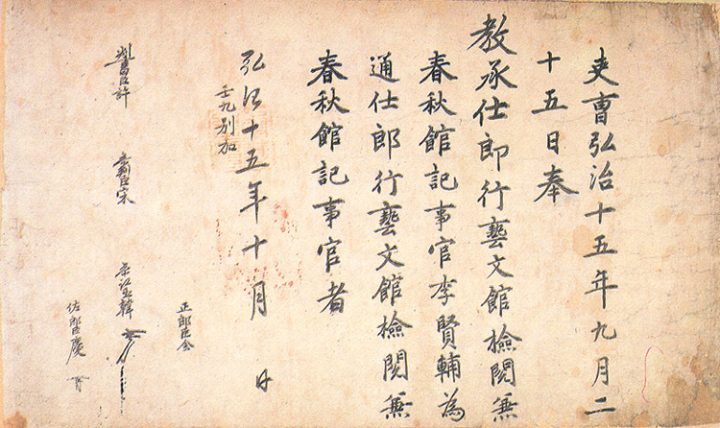 吏曹弘治十五年九月二
十五日奉
教承仕郎行藝文館檢閱兼
春秋館記事官李賢輔為
通仕郎行藝文館檢閱兼
春秋館記事官者
弘治十五年十月 日
壬九別加
判書臣許 參判臣宋 參議臣韓 正郎臣
佐郎臣慶